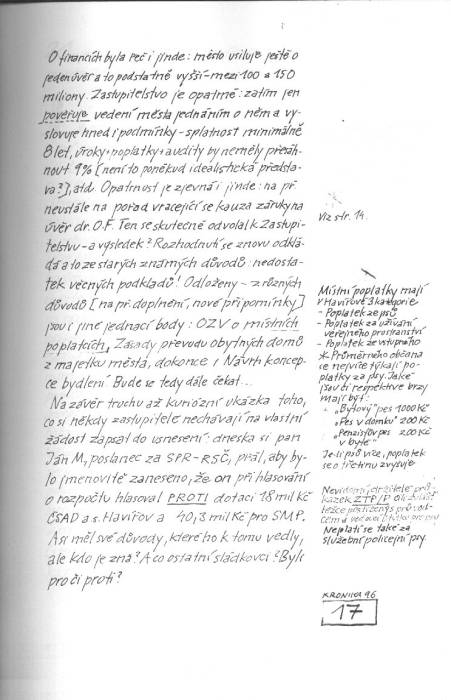 O financích byla řeč i jinde: město usiluje ještě o
jeden úvěr a to podstatně vyšší - mezi 100 a 150
miliony. Zastupitelstvo je opatrné: zatím jen
pověřuje vedení města jednáním o něm a vy-
slovuje hned i podmínky - splatnost minimálně
8 let, úroky + poplatky + audity by neměly přesáh-
nout 9% [není to poněkud idealistická předsta-
va?], atd. Opatrnost je zjevná i jinde: na př.
neustále na pořad vracející se kauza záruky na
úvěr dr. O.F. Ten se skutečně odvolal k Zastupi-
telstvu - a výsledek? Rozhodnutí se znovu odklá-
dá a to ze starých známých důvodů: nedosta-
tek věcných podkladů! Odloženy - z různých
důvodů [na př. doplnění, nové připomínky]
jsou i jiné jednací body: OZV o místních
poplatcích, Zásady převodu obytných domů
z majetku města, dokonce i Návrh koncep-
ce bydlení. Bude se tedy dále čekat...
Na závěr trochu až kuriózní ukázka toho,
co si někdy zastupitelé nechávají na vlastní
žádost zapsat do usnesení: dneska si pan
Ján M., poslanec za SPR-RSČ, přál, aby by-
lo jmenovitě zaneseno, že on při hlasování
o rozpočtu hlasoval PROTI dotaci 18 mil Kč
ČSAD a.s. Havířov a 40,3 mil Kč pro SMP.
Asi měl své důvody, které ho k tomu vedly,
ale kdo je zná? A co ostatní sládkovci? Byli
pro či proti?
Viz str. 14.
Místní poplatky mají
v Havířově 3 kategorie
- Poplatek ze psů
- Poplatek za užívání
veřejného prostranství
- Poplatek ze vstupného
* Průměrného občana
se nejvíce týkají po-
platky za psy. Jaké
jsou či respektive brzy
mají být:
"Bytový" pes 1000 Kč
"Pes v domku" 200 Kč
"Penzistův pes 200 Kč
v bytě"
Je-li psů více, poplatek
se o třetinu zvyšuje
Nevidomí, držitelé prů-
kazek ZTP/P
těžce postižený s průvod-
cem a
Neplatí se také za
služební policejní psy.
KRONIKA 96
17